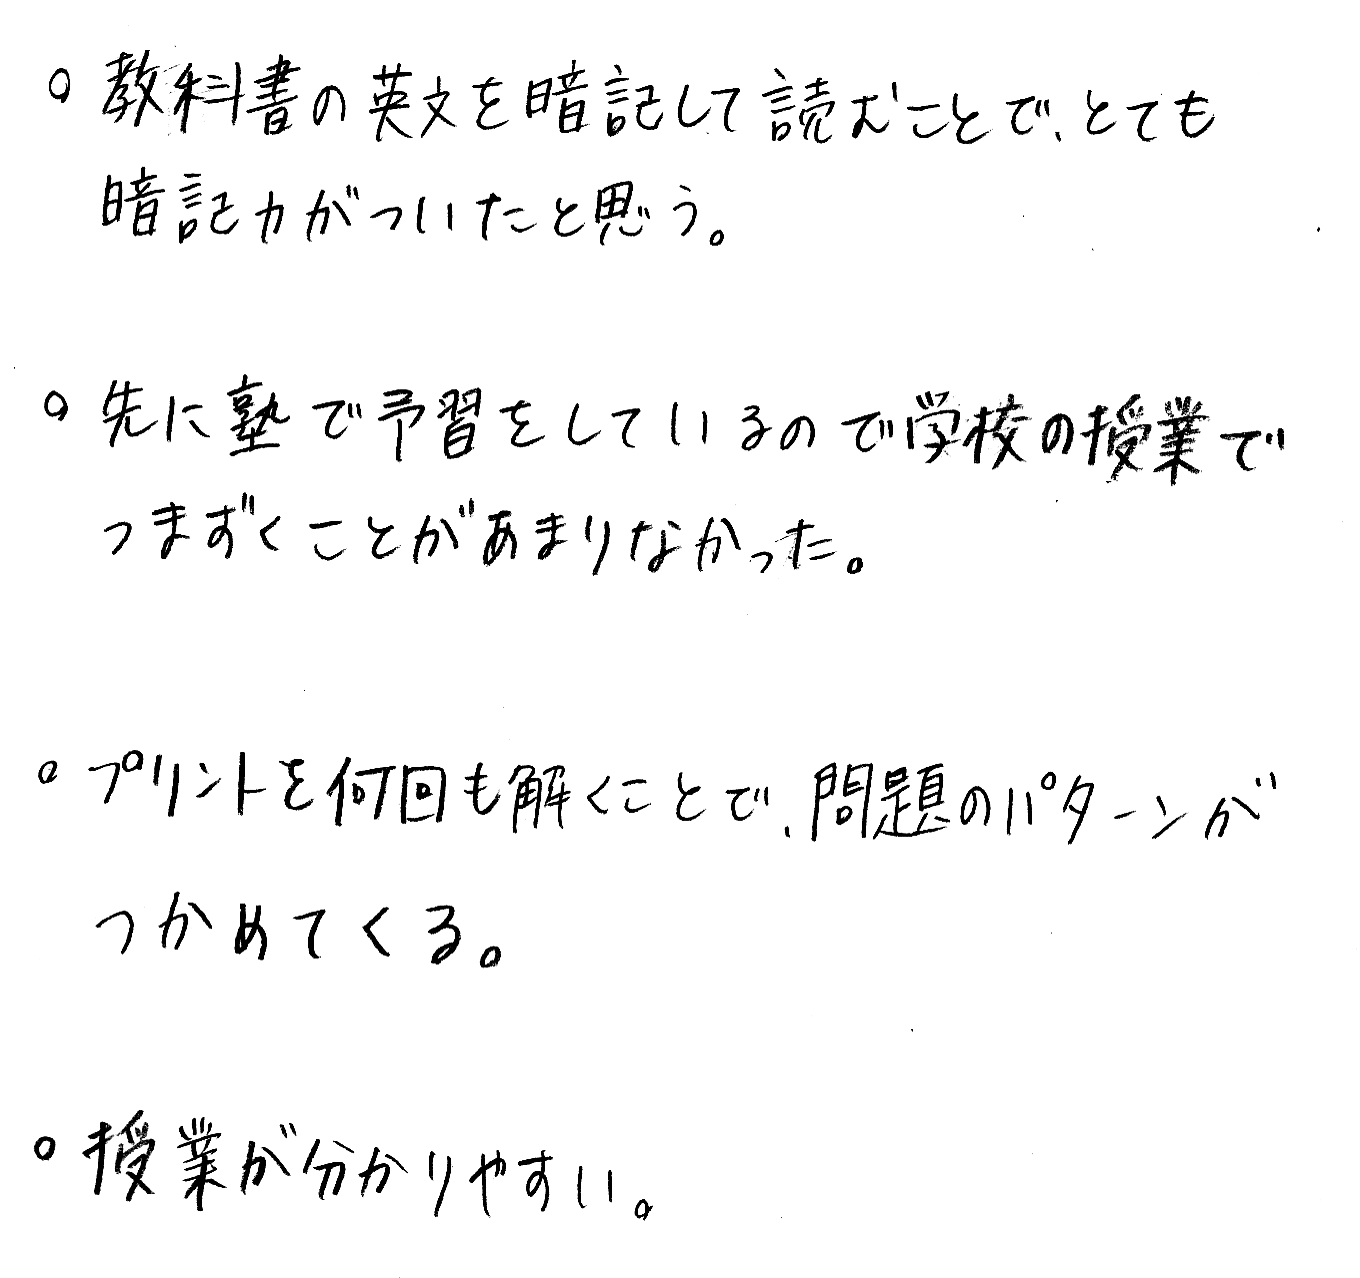 。教科書の英文を暗記して読むことで、とても
暗記力がついたと思う。
。先に塾で予習をしているので学校の授業で
つまずくことがあまりなかった。
。プリントを何回も解くことで、問題のパターンが
つかめてくる。
。授業が分かりやすい。